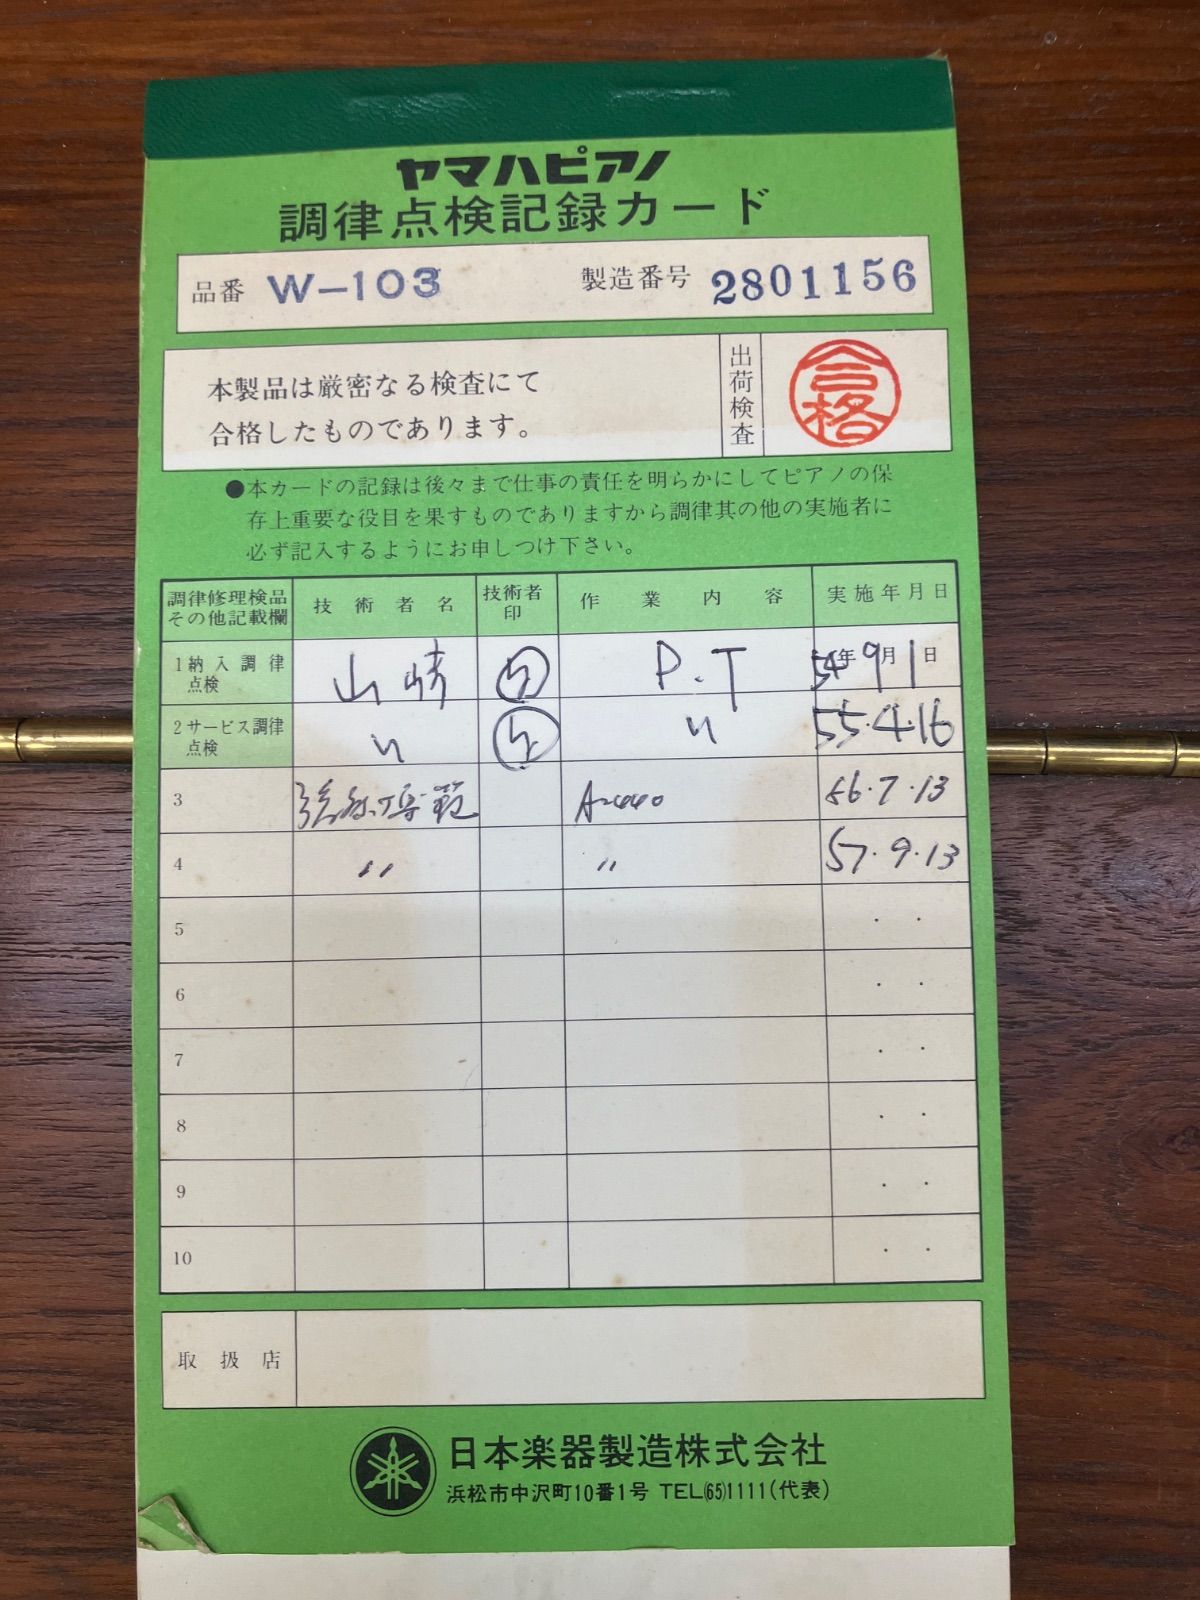 ヤマハピアノ
調律点検記録カード
品番 W-103 製造番号 2801156
本製品は厳密なる検査にて
合格したものであります。
出荷検査
合格
●本カードの記録は後々まで仕事の責任を明らかにしてピアノの保
存上重要な役目を果すものでありますから調律其の他の実施者に
必ず記入するようにお申しつけ下さい。
調律修理検品
その他記載欄
技術者名
技術者
印
作業内容
実施年月日
1納入調律
点検
山崎 P.T 54年9月1日
2サービス調律
点検
〃 〃 55.4.16
3 A=440 56.7.13
4 〃 〃 57.9.13
5 ・ ・
6 ・ ・
7 ・ ・
8 ・ ・
9 ・ ・
10 ・ ・
取扱店
日本楽器製造株式会社
浜松市中沢町10番1号 TEL(65)1111(代表)